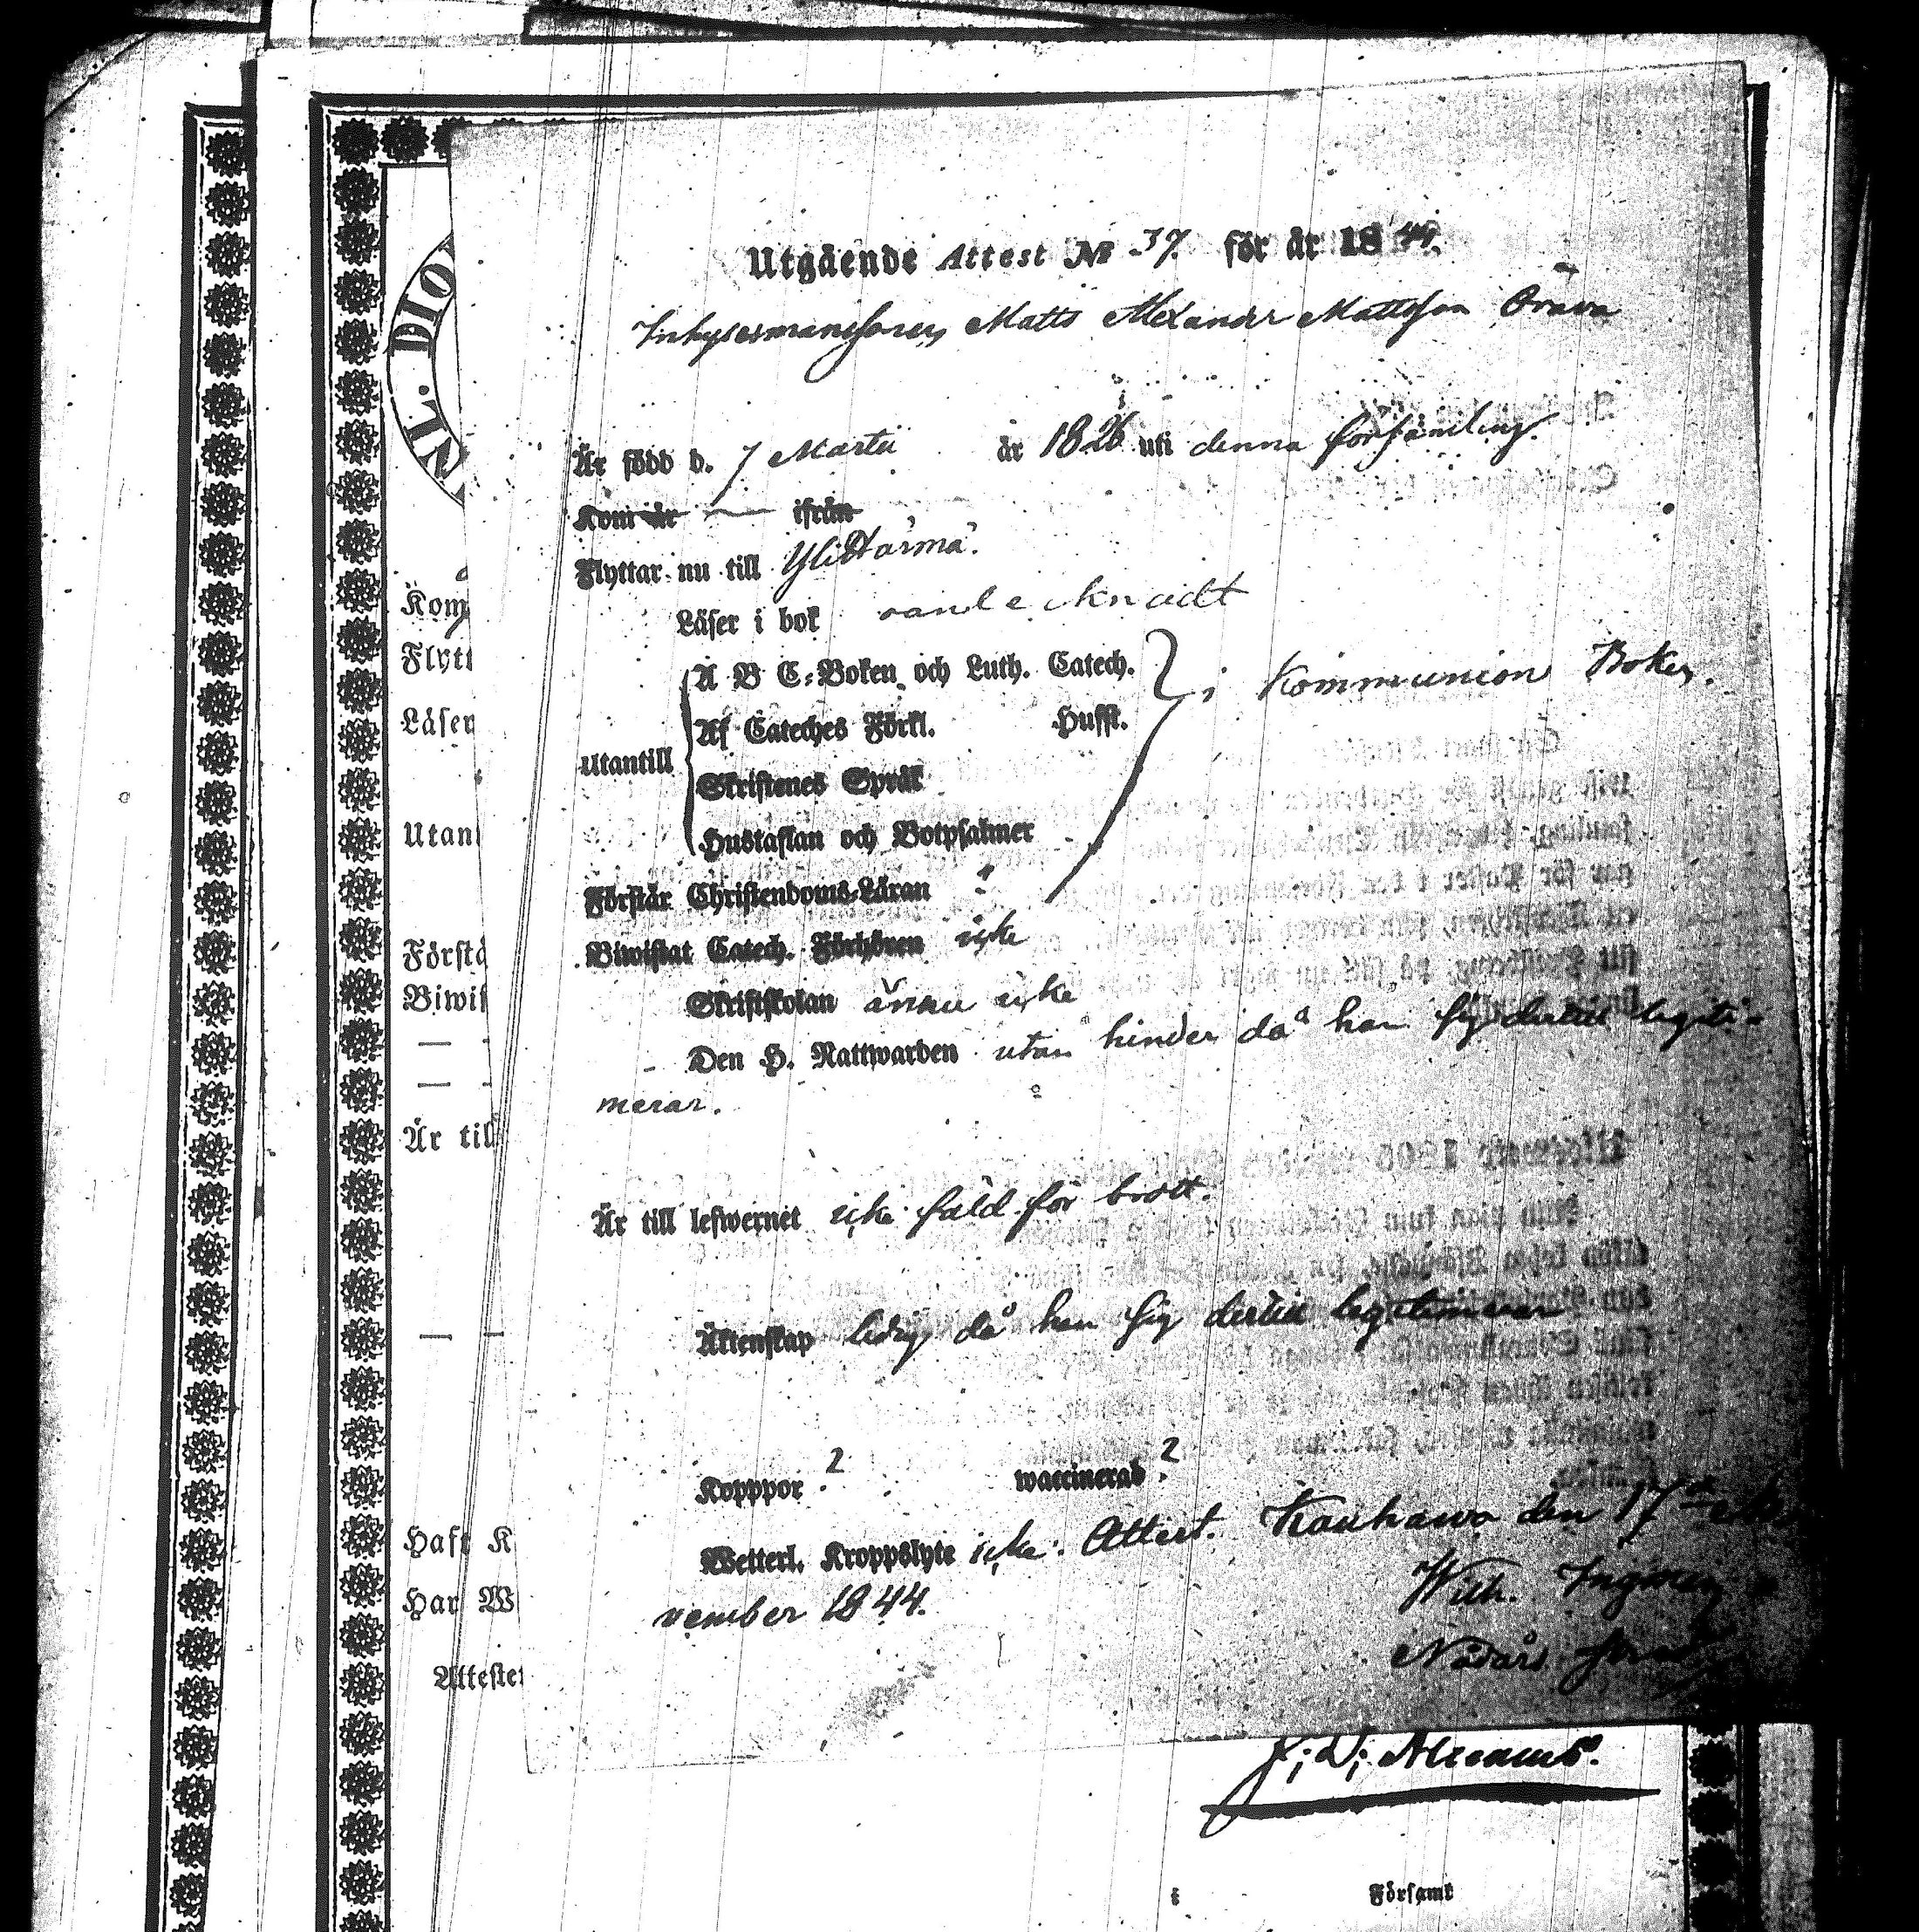 Utgående Attest № 37. för år 1844.
Inhysesmanssonen Matts Alexander Mattsson Orava
Är född d. 7 Martii år 1826 uti denna församling.
Kom år — ifrån
Flyttar nu till Ylihärmä.
Läser i bok
Utantill
A B C-Boken och Luth. Catech.
i Kommunion Boken.
Af Cateches Förkl. Hufft.
Skriftenes Språk
Hustaflan och Botpsalmer
Förstår Christendoms-Läran "
Biwistat Catech. Förhören icke
Skriftskolan ännu icke
Den H. Nattwarden utan hinder då han sig dertill legiti-
merar.
Är till lefwernet icke fäld för brott.
Äktenskap ledig då han sig dertill legitimerar
Kopppor ? waccinerad ?
Wetterl. Kroppslyte icke. Attest. Kauhawa den 17de
vember 1844.
Wilh. Ingman
Nådårs
NL. DIO
Kom
Flytt
Läser
Utan
Förstå
Biwis
— —
— —
Är till
— —
Haft K
Har W
Attester
i Församl